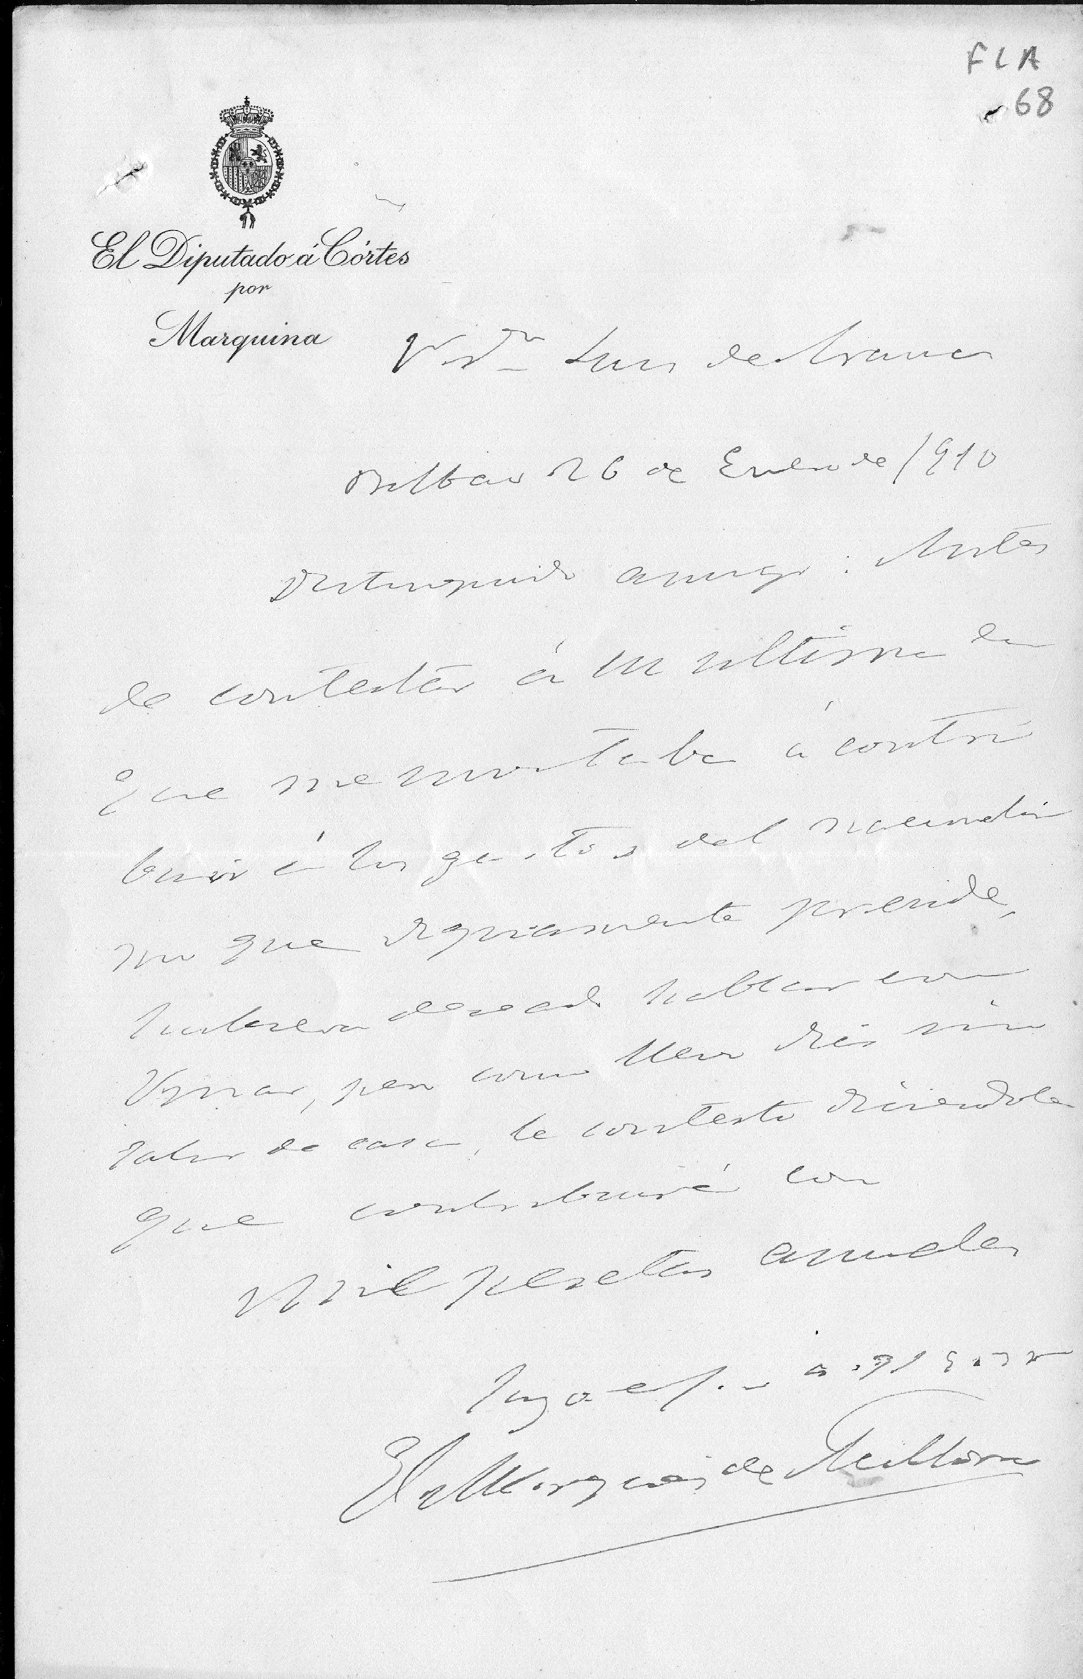 FLA
68
El Diputado á Córtes
por
Marquina
Sr Dn Luis de Arana
Bilbao 26 de Enero de 1910
Distinguido amigo: Antes
de contestar á su ultima en
que me invitaba á contri
buir á los gastos del
que dignamente preside,
hubiera deseado hablar con
pero como llevo dias sin
salir de casa, le contesto diciendole
que contribuiré con
mil pesetas anuales
Suyo
El Marqués de